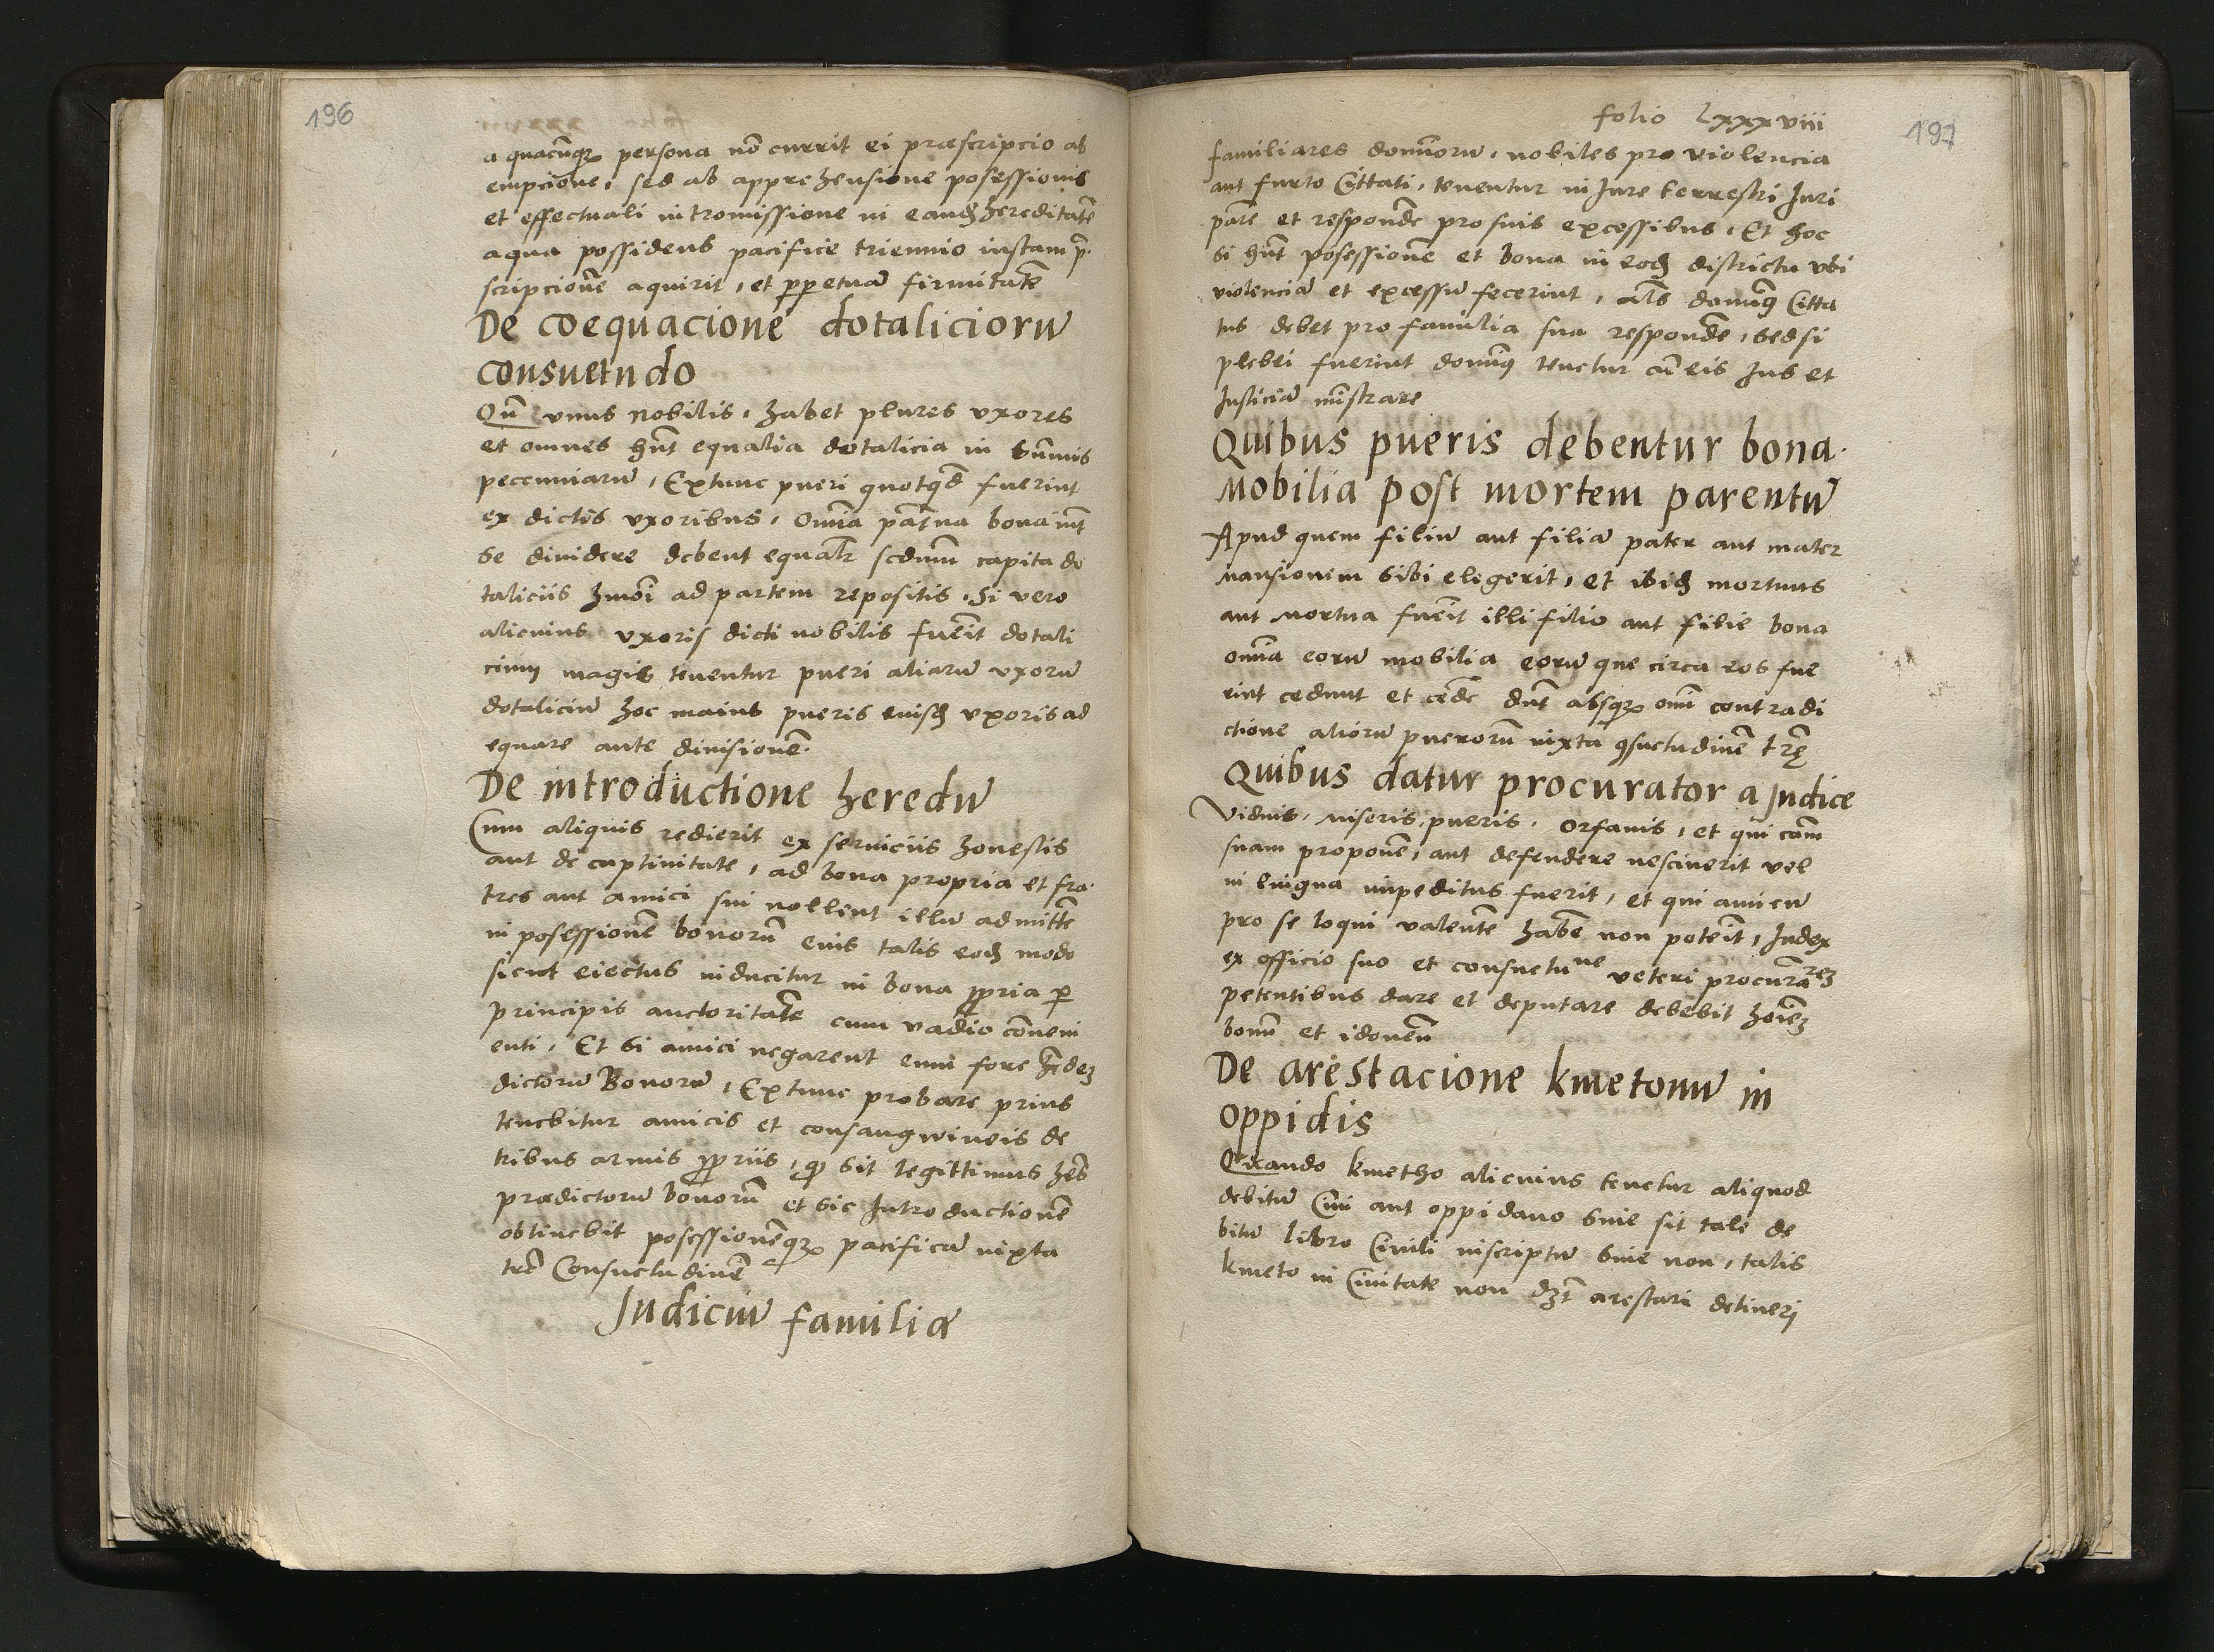 196
a quacũqꝫ persona nõ currit ei præscripcio ab
empcione, sed ab apprehensione posessionis
et effectuali intromissione in eandẽ hereditatẽ
a qua possidens pacifice triennio iustam p̃-
scripcionẽ aquirit, et ꝑpetuã firmitatẽ
De coequacione dotaliciorũ
consuetudo
Qũ vnus nobilis, habet plures vxores
et omnes hñt equalia dotalicia in sũmis
peccuniarũ, Extunc pueri quotqͥd fuerint
ex dictis vxoribus, omĩa pat̃na bona int̃
se diuidere debent equalr̃ scdnm̃ capita do
taliciis hm̃oi ad partem repositis, Si vero
alicuius vxoris dicti nobilis fuerĩt dotali
cium magis tenentur pueri aliarũ vxorũ
dotaliciũ hoc maius pueris euisdẽ vxoris ad
equare ante diuisionẽ.
De introductione heredũ
Cum aliquis redierit ex seruiciis honestis
aut de captiuitate, ad bona propria et fra-
tres aut amici sui nollent illũ admittẽ
in posessionẽ bonorũ euis talis eodẽ modo
sicut eiectus inducitur in bona ꝓpria ꝑ
principis auctoritatẽ cum vadio cõueni
enti, Et si amici negarent eum fore hẽdeꝫ
dictorũ Bonorũ, Extunc probare prius
tenebitur amicis et consangwineis de
tribus armis ꝓpriis, qͦ sit legittimus hẽs
prædictorũ bonorũ et sic Introductionẽ
obtinebit posessionẽqꝫ pacificã iuxta
trẽ Consuetudinẽ
Iudiciũ familiæ
folio lxxxviii
197
familiares domĩorũ, nobiles pro violencia
aut furto Cittati, tenentur in Iure terrestri Iuri
parẽ et respondẽ pro suis excessibus, Et hoc
si hñt posessionẽ et bona in eodẽ districtu vbi
violenciã et excessũ fecerint, als̃ domiñꝰ Citta
tus debet pro familia sua respondẽ, sed si
plebei fuerint domiñꝰ tenetur cũ eis Ius et
Iusticiã mĩstrare
Quibus pueris debentur bona
Mobilia post mortem parentũ
Apud quem filiũ aut filiã pater aut mater
mansionem sibi elegerit, et ibidẽ mortuus
aut mortua fuerĩt illi filio aut filie bona
omĩa eorũ mobilia eorũ que circa eos fue
rint cedunt et cedẽ dñt absqꝫ omĩ contradi
ctione aliorũ puerorũ iuxta ꝯsuetudinẽ trę̃
Quibus datur procurator a Iudice
Viduis, miseris, pueris, orfanis, et qui cãm
suam proponẽ, aut defendere nesciuerit vel
in lingua impeditus fuerit, et qui amicũ
pro se loqui valentẽ habẽ non poterĩt, Iudex
ex officio suo et consuetuⁿᵉ veteri procuraʳᵉꝫ
petentibus dare et deputare debebit hoĩeꝫ
bonũ et idoneũ
De arestacione kmetonũ in
oppidis
Quando kmetho alicuius tenetur aliquod
debitũ Ciui aut oppidano siue sit tale de
bitũ libro Ciuili inscriptũ siue non, talis
kmeto in Ciuitate non dꝫt arestari detineri